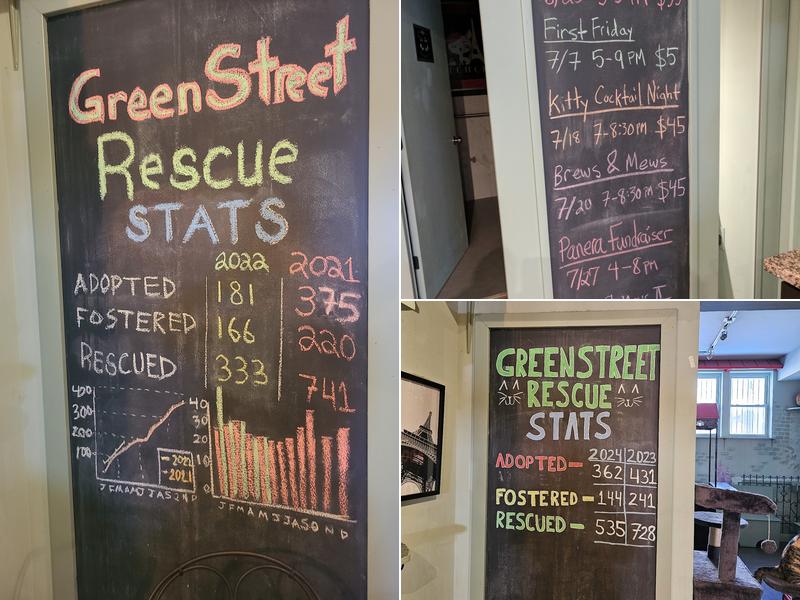 GreenStreet
Rescue
STATS
2022 2021
ADOPTED 181 375
FOSTERED 166 220
RESCUED 333 741
400
300
200
100
2022
2021
J F M A M J J A S O N D
40
30
20
10
0
J F M A M J J A S O N D
First Friday
7/7 5-9 PM $5
Kitty Cocktail Night
7/18 7-8:30 PM $45
Brews & Mews
7/20 7-8:30 PM $45
Panera Fundraiser
7/27 4-8 PM
GREENSTREET
RESCUE
STATS
2024 2023
ADOPTED- 362 431
FOSTERED- 144 241
RESCUED - 535 728